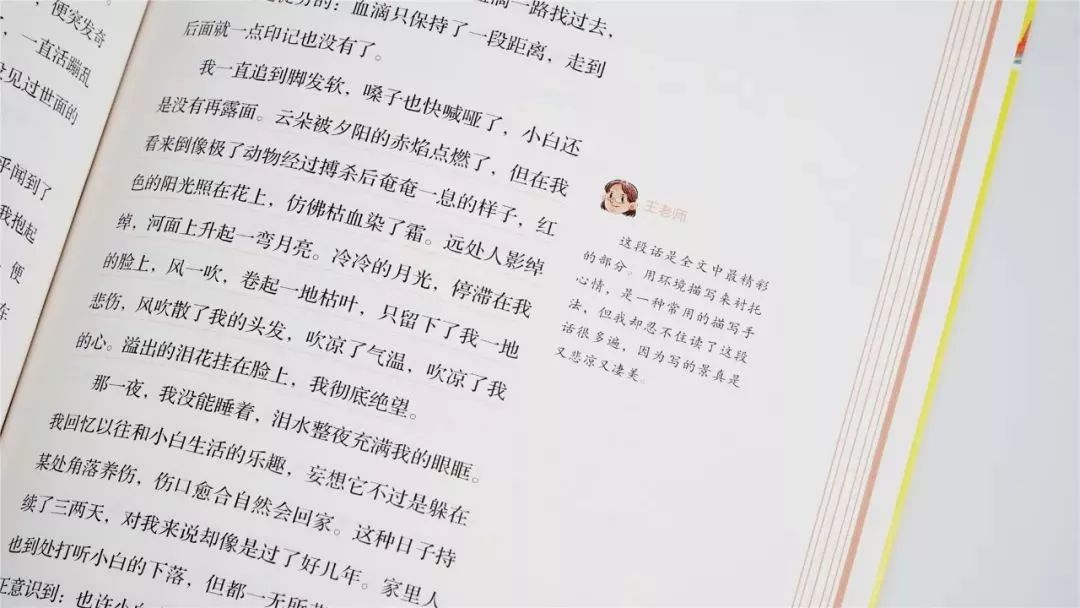 ，便突发奇
，一直活蹦乱
见过世面的
乎闻到了
我抱起
，便
血滴只保持了一段距离，走到
后面就一点印记也没有了。
我一直追到脚发软，嗓子也快喊哑了，小白还
是没有再露面。云朵被夕阳的赤焰点燃了，但在我
看来倒像极了动物经过搏杀后奄奄一息的样子，红
色的阳光照在花上，仿佛枯血染了霜。远处人影绰
绰，河面上升起一弯月亮。冷冷的月光，停滞在我
的脸上，风一吹，卷起一地枯叶，只留下了我一地
悲伤，风吹散了我的头发，吹凉了气温，吹凉了我
的心。溢出的泪花挂在脸上，我彻底绝望。
那一夜，我没能睡着，泪水整夜充满我的眼眶。
我回忆以往和小白生活的乐趣，妄想它不过是躲在
某处角落养伤，伤口愈合自然会回家。这种日子持
续了三两天，对我来说却像是过了好几年。家里人
也到处打听小白的下落，但都一无所
意识到：也许小白
王老师
这段话是全文中最精彩
的部分。用环境描写来衬托
心情，是一种常用的描写手
法，但我却忍不住读了这段
话很多遍，因为写的景真是
又悲凉又凄美。